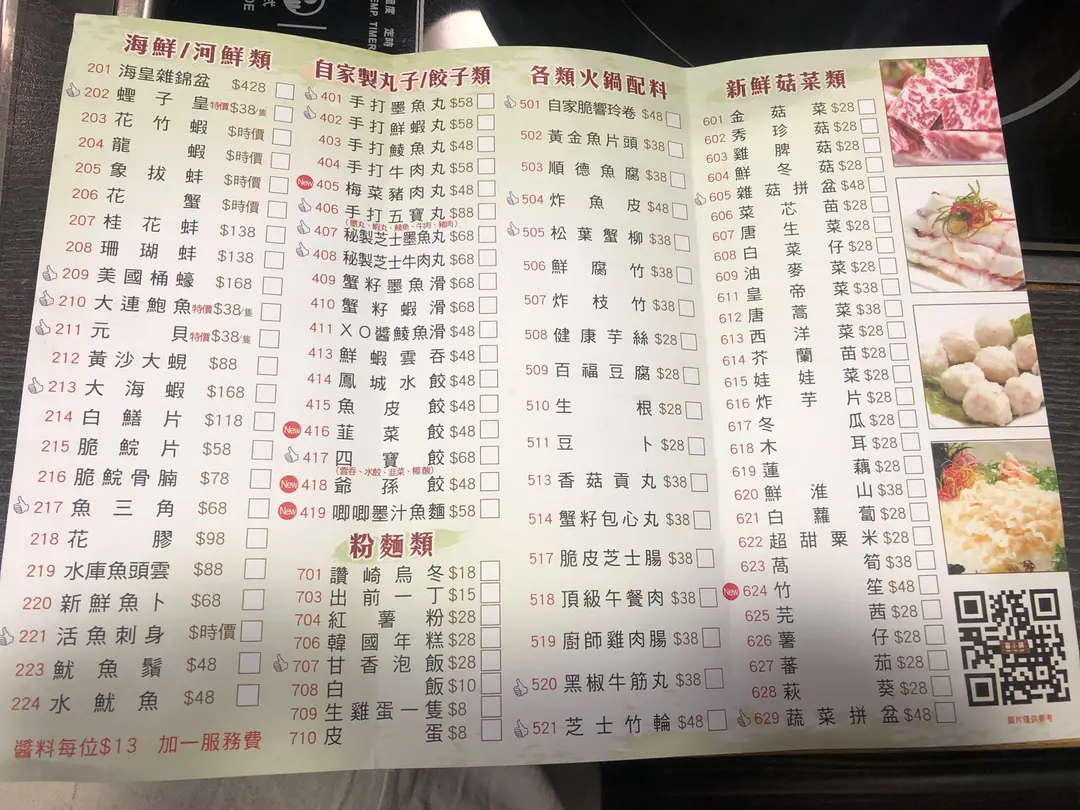 度 定時
TEMP. TIMER
DE
式
海鮮/河鮮類
201 海皇雜錦盆 $428
202 蟶子皇 特價$38/隻
203 花竹蝦 $時價
204 龍蝦 $時價
205 象拔蚌 $時價
206 花蟹 $時價
207 桂花蚌 $138
208 珊瑚蚌 $138
209 美國桶蠔 $168
210 大連鮑魚 特價$38/隻
211 元貝 特價$38/隻
212 黃沙大蜆 $88
213 大海蝦 $168
214 白鱔片 $118
215 脆鯇片 $58
216 脆鯇骨腩 $78
217 魚三角 $68
218 花膠 $98
219 水庫魚頭雲 $88
220 新鮮魚卜 $68
221 活魚刺身 $時價
223 魷魚鬚 $48
224 水魷魚 $48
醬料每位$13 加一服務費
自家製丸子/餃子類
401 手打墨魚丸 $58
402 手打鮮蝦丸 $58
403 手打鯪魚丸 $48
404 手打牛肉丸 $58
New 405 梅菜豬肉丸 $48
406 手打五寶丸 $88
(墨丸、蝦丸、鯪魚、牛肉、豬肉)
407 秘製芝士墨魚丸 $68
408 秘製芝士牛肉丸 $68
409 蟹籽墨魚滑 $68
410 蟹籽蝦滑 $68
411 XO醬鯪魚滑 $48
413 鮮蝦雲吞 $48
414 鳳城水餃 $48
415 魚皮餃 $48
New 416 韮菜餃 $48
417 四寶餃 $68
(雲吞、水餃、韮菜、椰酸)
New 418 爺孫餃 $48
New 419 唧唧墨汁魚麵 $58
粉麵類
701 讚崎烏冬 $18
703 出前一丁 $15
704 紅薯粉 $28
706 韓國年糕 $28
707 甘香泡飯 $28
708 白飯 $10
709 生雞蛋一隻 $8
710 皮蛋 $8
各類火鍋配料
501 自家脆響玲卷 $48
502 黃金魚片頭 $38
503 順德魚腐 $38
504 炸魚皮 $48
505 松葉蟹柳 $38
506 鮮腐竹 $38
507 炸枝竹 $38
508 健康芋絲 $28
509 百福豆腐 $28
510 生根 $28
511 豆卜 $28
513 香菇貢丸 $38
514 蟹籽包心丸 $38
517 脆皮芝士腸 $38
518 頂級午餐肉 $38
519 廚師雞肉腸 $38
520 黑椒牛筋丸 $38
521 芝士竹輪 $48
新鮮菇菜類
601 金菇菜 $28
602 秀珍菇 $28
603 雞脾菇 $28
604 鮮冬菇 $28
605 雜菇拼盆 $48
606 菜芯苗 $28
607 唐生菜 $28
608 白菜仔 $28
609 油麥菜 $28
611 皇帝菜 $38
612 唐蒿菜 $38
613 西洋菜 $28
614 芥蘭苗 $28
615 娃娃菜 $28
616 炸芋片 $28
617 冬瓜 $28
618 木耳 $28
619 蓮藕 $28
620 鮮淮山 $38
621 白蘿蔔 $28
622 超甜粟米 $28
623 萵筍 $38
New 624 竹笙 $48
625 芫茜 $28
626 薯仔 $28
627 蕃茄 $28
628 萩葵 $28
629 蔬菜拼盆 $48
圖片僅供參考